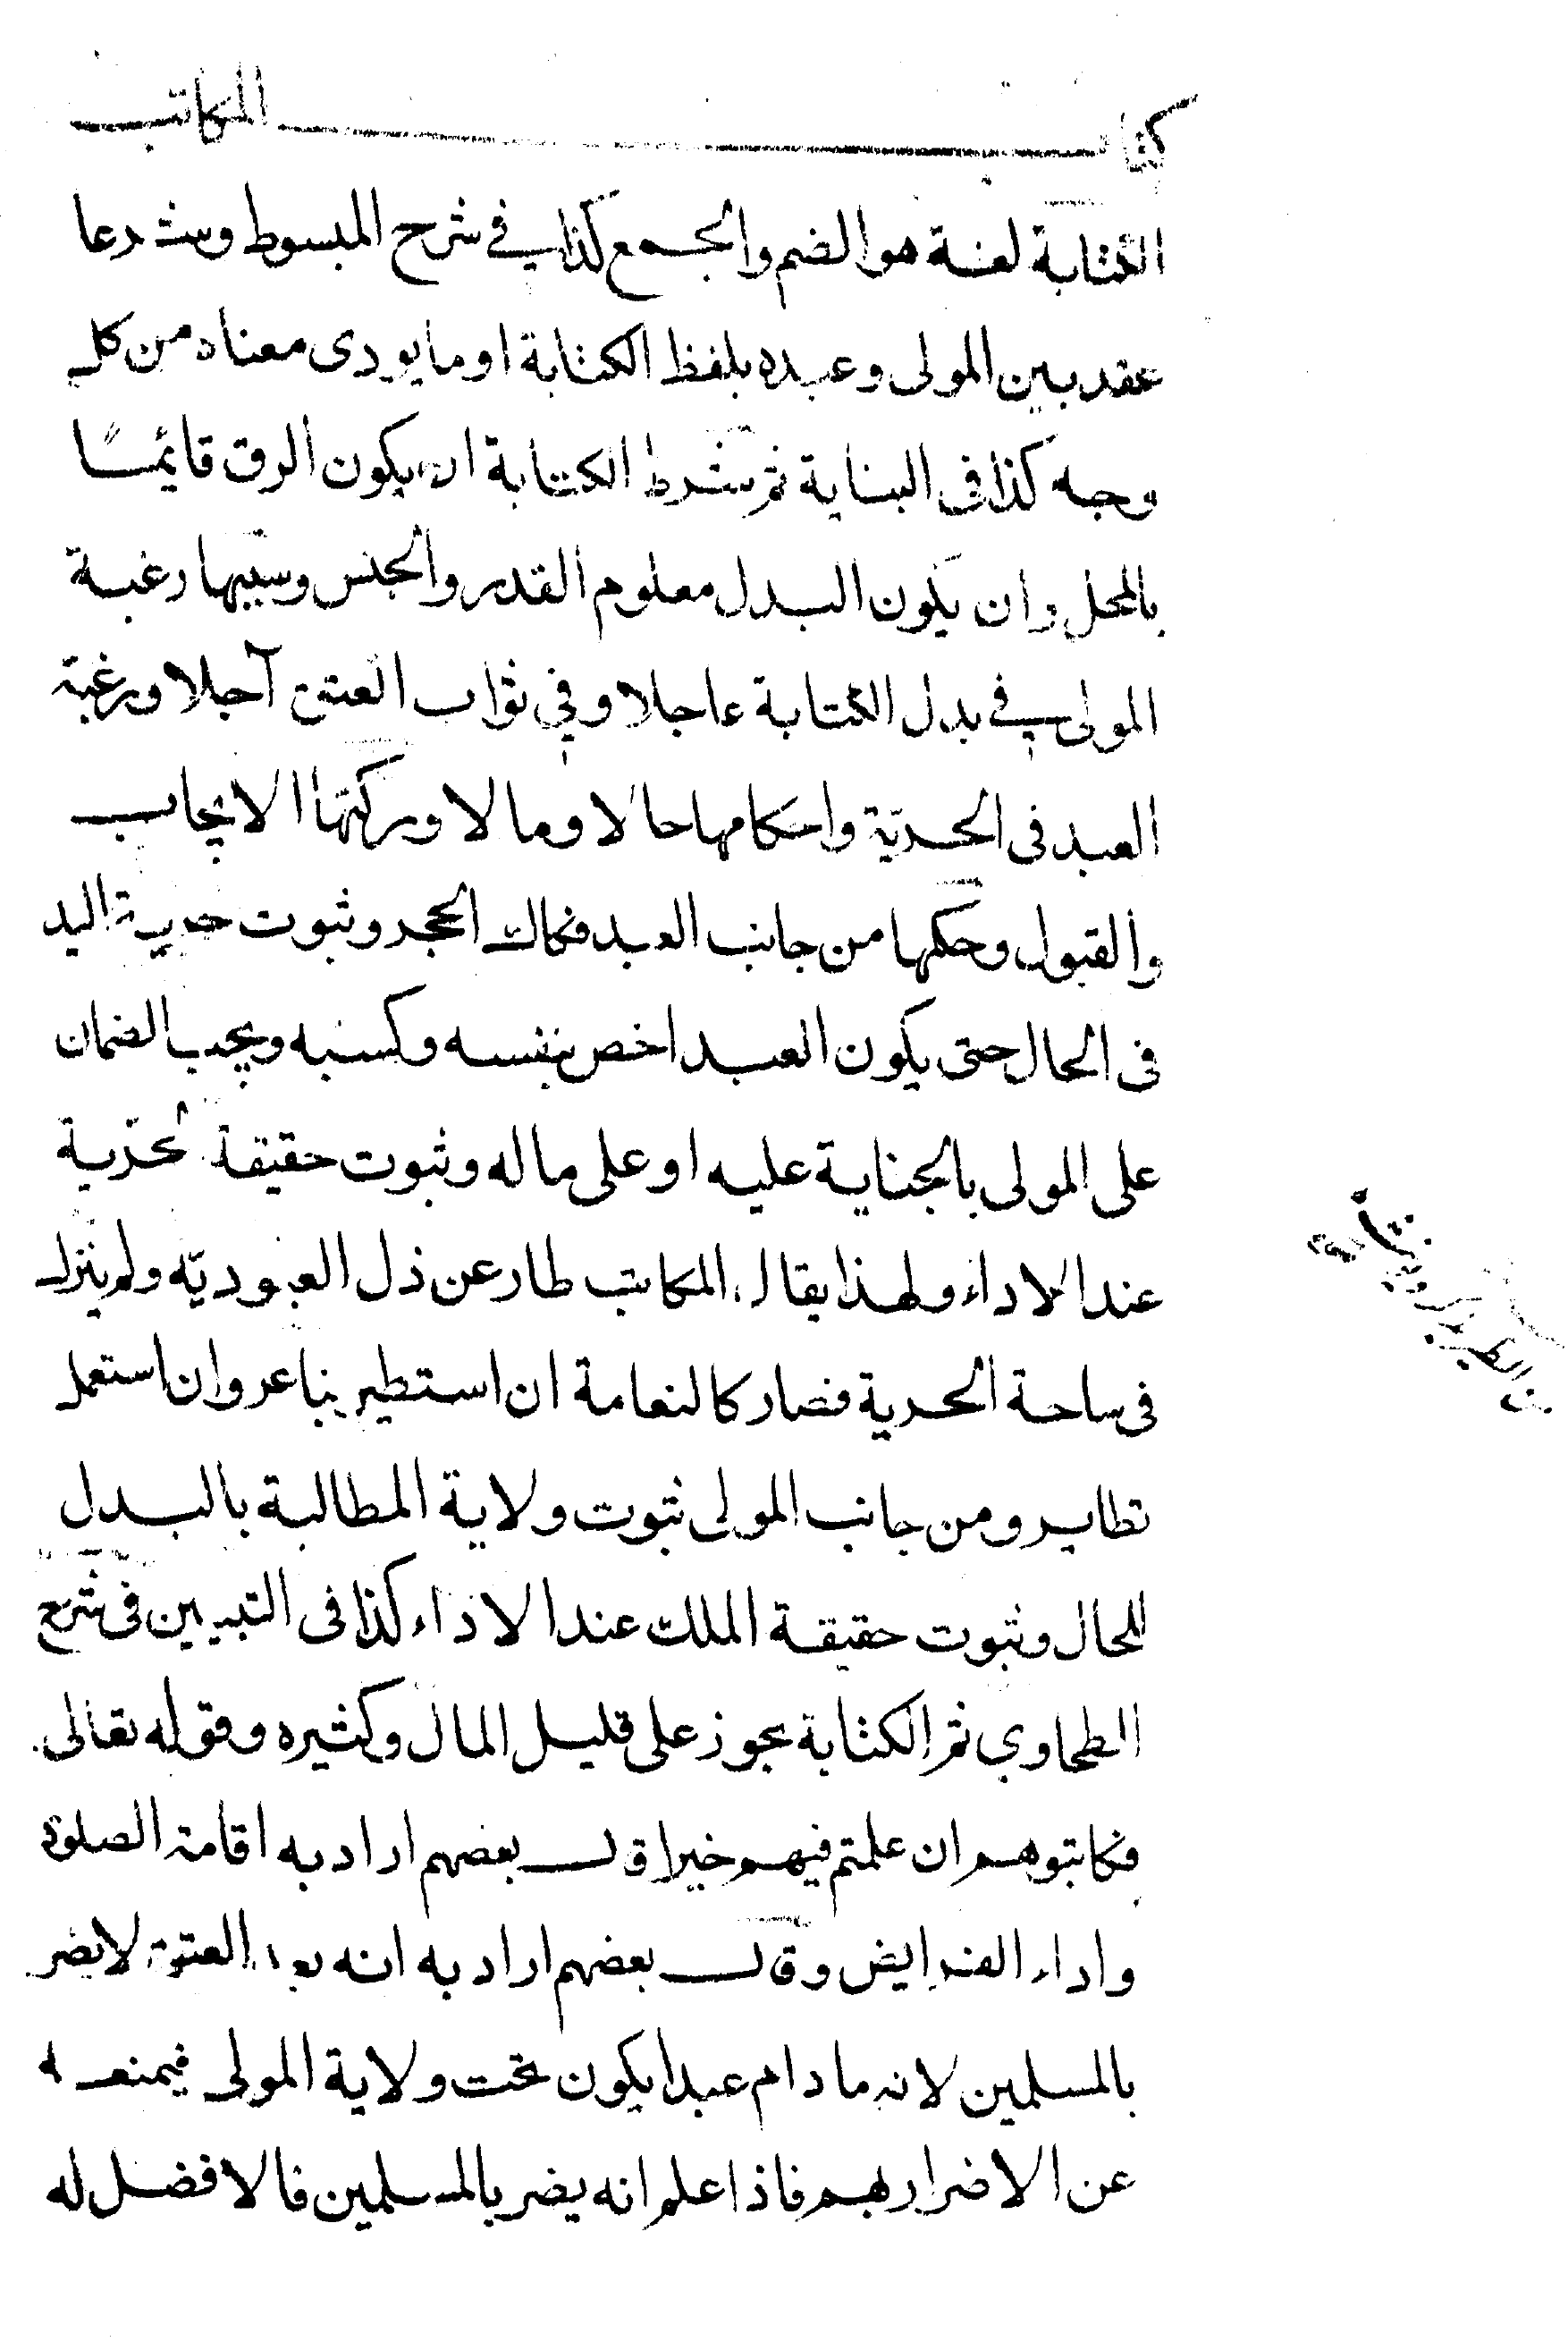 كتاب المكاتب
الكتابة لغة هو الضم والجمع كذا في شرح المبسوط وشرعا
عقد بين المولى وعبده بلفظ الكتابة او ما يودى معناه من كل
وجه كذا فى البناية ثم شرط الكتابة ان يكون الرق قائمًا
بالمحل وان يكون البدل معلوم القدر والجنس وسببها رغبة
المولى في بدل الكتابة عاجلا وفي ثواب العتق آجلا ورغبة
العبد فى الحرّية واحكامها حالا ومالا وركنها الايجاب
والقبول وحكمها من جانب العبد فكاك الحجر وثبوت حرية اليد
فى الحال حتى يكون العبد اخص بنفسه وكسبه ويجب الضمان
على المولى بالجناية عليه او على ماله وثبوت حقيقة الحرّية
عند الاداء ولهذا يقال المكاتب طار عن ذل العبوديّه ولم ينزل
فى ساحة الحرية فصار كالنعامة ان استطير تباعر وان استعمل
تطاير ومن جانب المولى ثبوت ولاية المطالبة بالبدل
للحال وثبوت حقيقة الملك عند الاداء كذا فى التبيين فى شرح
الطحاوي ثم الكتابة يجوز على قليل المال وكثيره وقوله تعالى
فكاتبوهم ان علمتم فيهم خيرا قال بعضهم اراد به اقامة الصلوة
واداء الفرايض وقال بعضهم اراد به انه بعد العتق لا يضر
بالمسلمين لانه ما دام عبدا يكون تحت ولاية المولى فيمنعه
عن الاضرار بهم فاذا علم انه يضر بالمسلمين فالافضل له